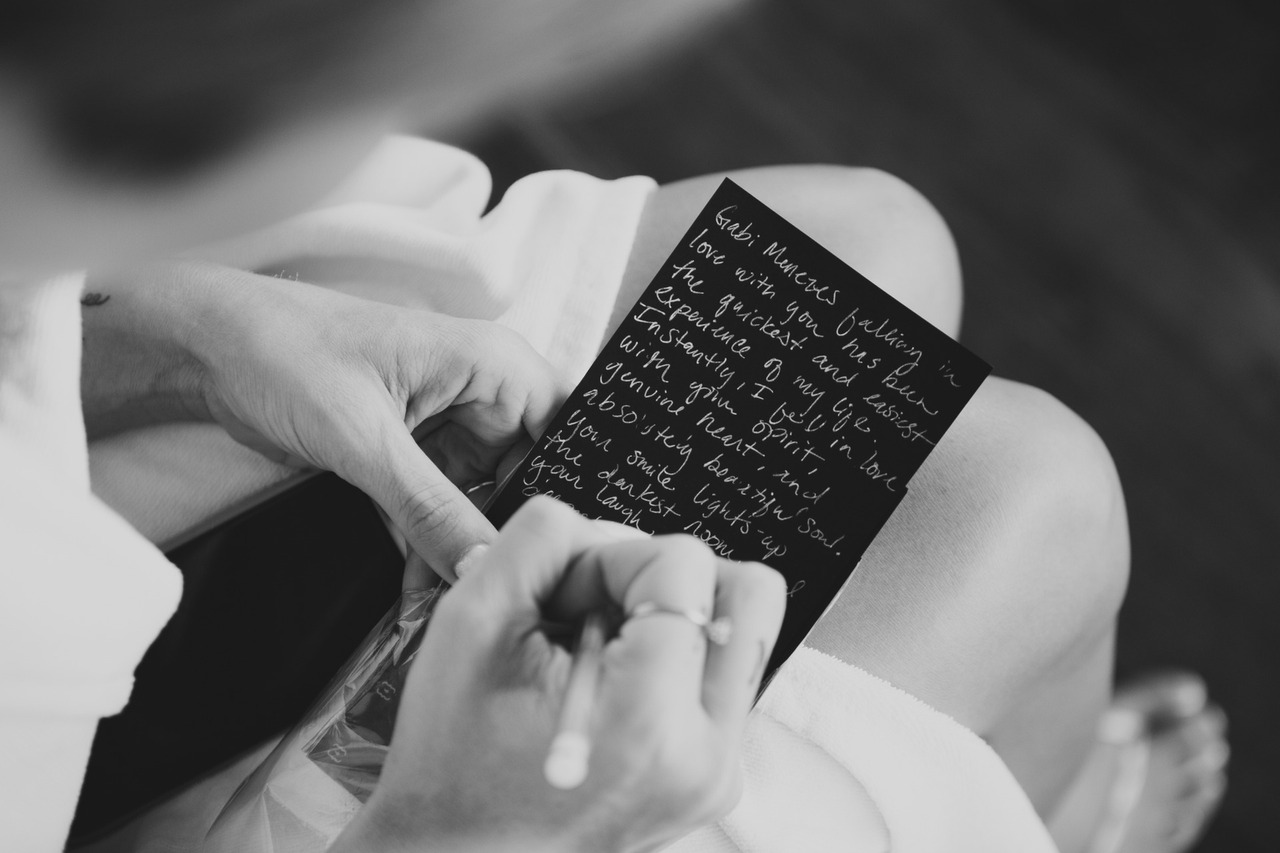 Gabi Menezes falling in
love with you has been
the quickest and easiest
experience of my life.
Instantly, I fell in love
with your spirit,
genuine heart, and
absolutely beautiful soul.
your smile lights-up
the darkest room
your laugh